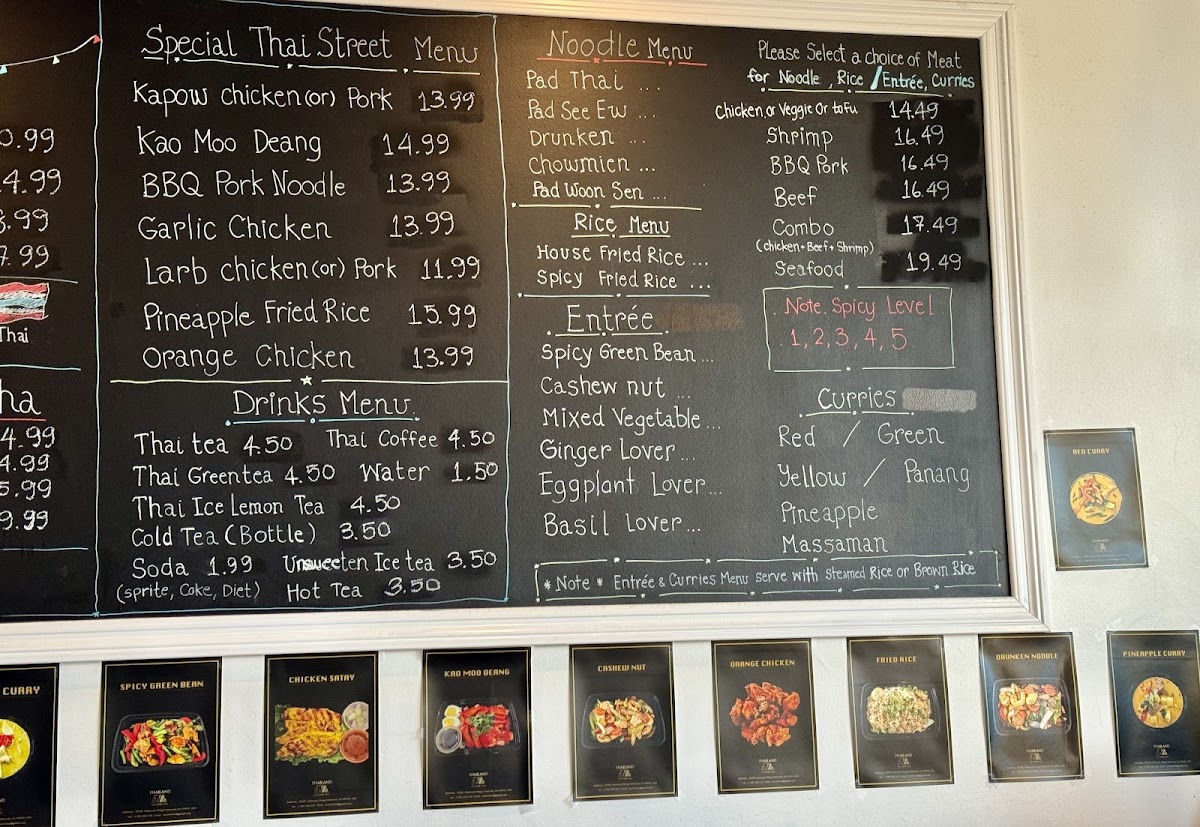 .99
4.99
.99
.99
Thai
ha
4.99
4.99
5.99
9.99
Special Thai Street Menu
Kapow chicken (or) Pork 13.99
Kao Moo Deang 14.99
BBQ Pork Noodle 13.99
Garlic Chicken 13.99
Larb chicken (or) Pork 11.99
Pineapple Fried Rice 15.99
Orange Chicken 13.99
Drinks Menu
Thai tea 4.50 Thai Coffee 4.50
Thai Greentea 4.50 Water 1.50
Thai Ice Lemon Tea 4.50
Cold Tea (Bottle) 3.50
Soda 1.99 Unsweeten Ice tea 3.50
(sprite, Coke, Diet) Hot Tea 3.50
Noodle Menu
Pad Thai ...
Pad See Ew ...
Drunken ...
Chowmien ...
Pad Woon Sen ...
Rice Menu
House Fried Rice ...
Spicy Fried Rice ...
Entrée
Spicy Green Bean ...
Cashew nut ...
Mixed Vegetable ...
Ginger Lover ...
Eggplant Lover ...
Basil Lover ...
Please Select a choice of Meat
for Noodle, Rice / Entrée, Curries
Chicken or Veggie Or toFu 14.49
Shrimp 16.49
BBQ Pork 16.49
Beef 16.49
Combo 17.49
(chicken + Beef + Shrimp)
Seafood 19.49
Note. Spicy Level
1, 2, 3, 4, 5
Curries
Red / Green
Yellow / Panang
Pineapple
Massaman
* Note * Entrée & Curries Menu serve with steamed Rice or Brown Rice
RED CURRY
CURRY
SPICY GREEN BEAN
THAILAND
CHICKEN SATAY
THAILAND
KAO MOO DEANG
THAILAND
CASHEW NUT
THAILAND
ORANGE CHICKEN
THAILAND
FRIED RICE
THAILAND
DRUNKEN NOODLE
THAILAND
PINEAPPLE CURRY
THAILAND